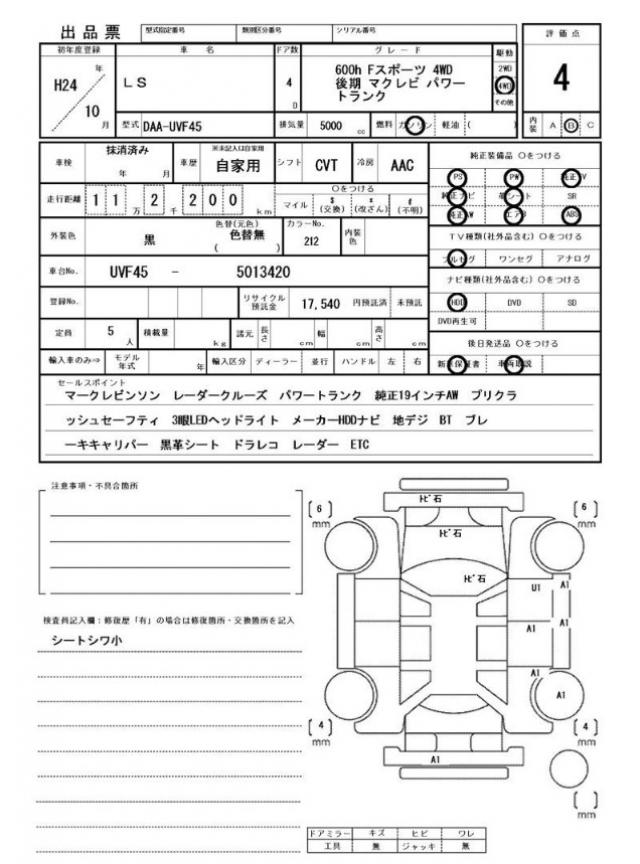 出品票 型式指定番号 類別区分番号 シリアル番号 評価点
初年度登録 車名 ドア数 グレード 駆動
H24 年 10 月 LS 4 D 600h Fスポーツ 4WD 2WD 4
後期 マクレビ パワー 4WD
トランク その他
型式 DAA-UVF45 排気量 5000 cc 燃料 ガソリン 軽油 ( ) 内装 A B C
車検 抹消済み 年 月 車歴 ※未記入は自家用 自家用 シフト CVT 冷房 AAC 純正装備品 〇をつける
PS PW 純正TV
走行距離 1 1 万 2 千 2 0 0 km 〇をつける 純正ナビ 革シート SR
マイル $ (交換) * (改ざん) # (不明) 純正AW エアB ABS
外装色 黒 色替(元色) 色替無 ( ) カラーNo. 212 内装色 TV種類(社外品含む) 〇をつける
フルセグ ワンセグ アナログ
車台No. UVF45 - 5013420 ナビ種類(社外品含む) 〇をつける
登録No. リサイクル預託金 17,540 円預託済 未預託 HDD DVD SD
DVD再生可
定員 5 人 積載量 kg 諸元 長さ cm 幅 cm 高さ cm 後日発送品 〇をつける
輸入車のみ⇒ モデル年式 年 輸入区分 ディーラー 並行 ハンドル 左 右 新車保証書 車両取説
セールスポイント
マークレビンソン レーダークルーズ パワートランク 純正19インチAW プリクラ
ッシュセーフティ 3眼LEDヘッドライト メーカーHDDナビ 地デジ BT ブレ
ーキキャリパー 黒革シート ドラレコ レーダー ETC
注意事項・不具合箇所
検査員記入欄：修復歴「有」の場合は修復箇所・交換箇所を記入
シートシワ小
トビ石
[6] mm トビ石 [6] mm
トビ石
U1 A1
A1 A1
A1
A1
[4] mm [4] mm
A1
[ ] mm
ドアミラー キズ ヒビ ワレ
工具 無 ジャッキ 無